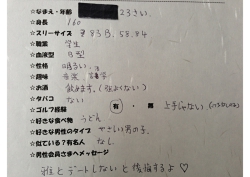 ☆なまえ・年齢 23さい
☆身長 160
☆スリーサイズ 83 58.84
☆職業 学生
☆血液型 型
☆性格 明るい
☆趣味 音楽
☆お酒 飲めます。
☆タバコ ない
☆ゴルフ経験 有・無 上手じゃない
☆好きな食べ物 うどん
☆好きな男性のタイプ やさしい男の子。
☆似ている?有名人 なし
☆男性会員さまへメッセージ
私とデートしないと後悔するよ♡